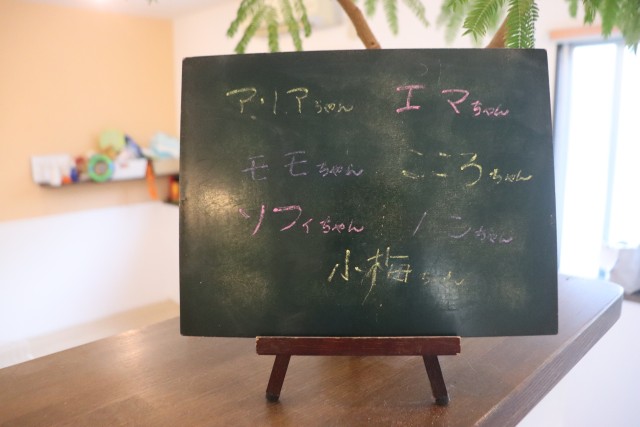 アリアちゃん エマちゃん
モモちゃん こころちゃん
ソフィちゃん ノンちゃん
小梅ちゃん